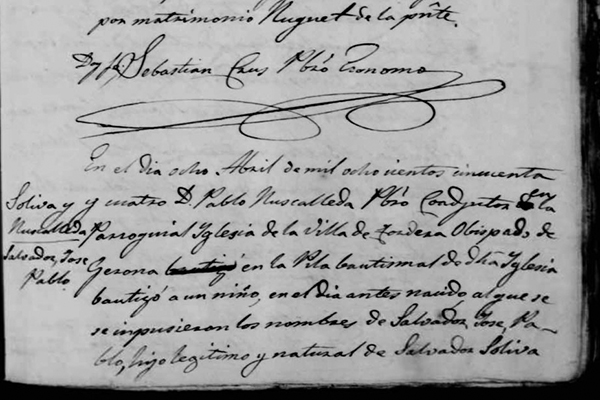 por matrimonio Nuguet de la pñte.
Sebastian Crus Pbrõ Economo
En el dia ocho Abril de mil ochocientos cincuenta
Soliva y
Nuscalleda
Salvador, Jose
Pablo
y cuatro D. Pablo Nuscalleda Pbrõ Coadjutor en la
Parroquial Yglesia de la Villa de Tordera Obispado de
Gerona bautizó en la Pila bautismal de dha Yglesia
bautizó a un niño, en el dia antes nacido al que se
se inpusieron los nombres de Salvador, Jose, Pa-
blo, hijo legitimo y natural de Salvador Soliva